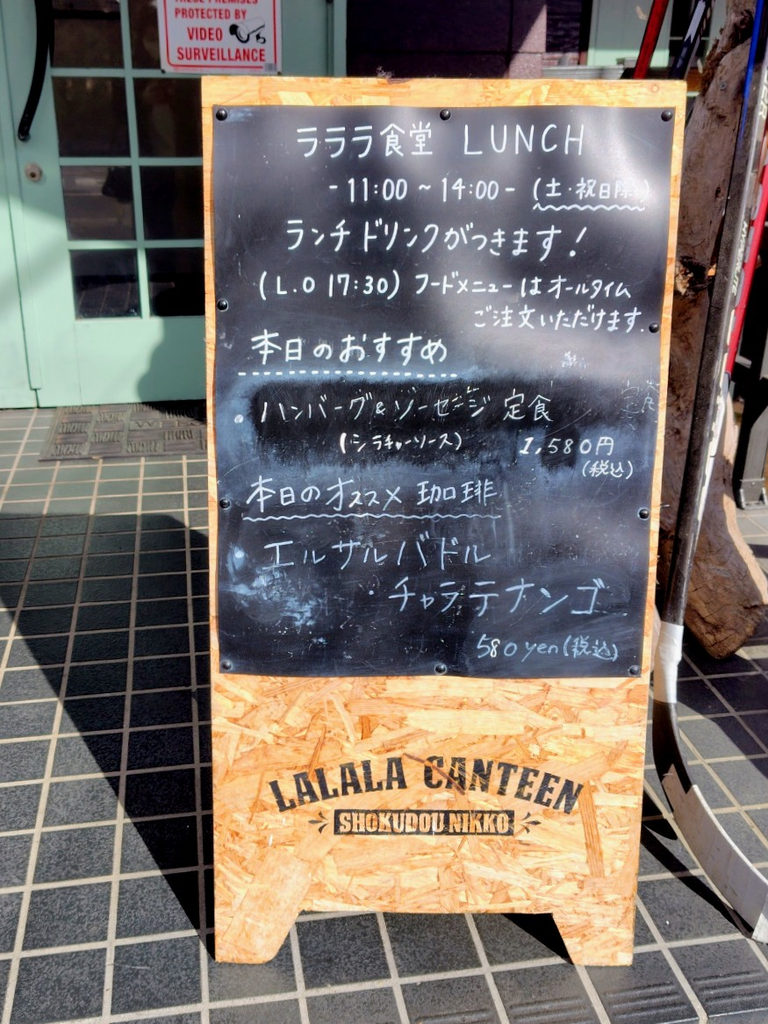 THESE PREMISES
PROTECTED BY
VIDEO
SURVEILLANCE
ラララ食堂 LUNCH
- 11:00 ~ 14:00 - (土・祝日除)
ランチドリンクがつきます!
(L.O 17:30) フードメニューはオールタイム
ご注文いただけます.
本日のおすすめ
・ハンバーグ&ソーセージ定食
(シラチャーソース)
1,580円
(税込)
本日のオススメ 珈琲
エルサルバドル
・チャラテナンゴ
580yen(税込)
LALALA CANTEEN
SHOKUDOU NIKKO